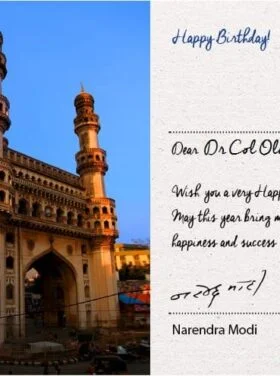 Happy Birthday!
Dear Dr Col
Wish you a very
May this year bring
happiness and success
नरेन्द्र मोदी
Narendra Modi